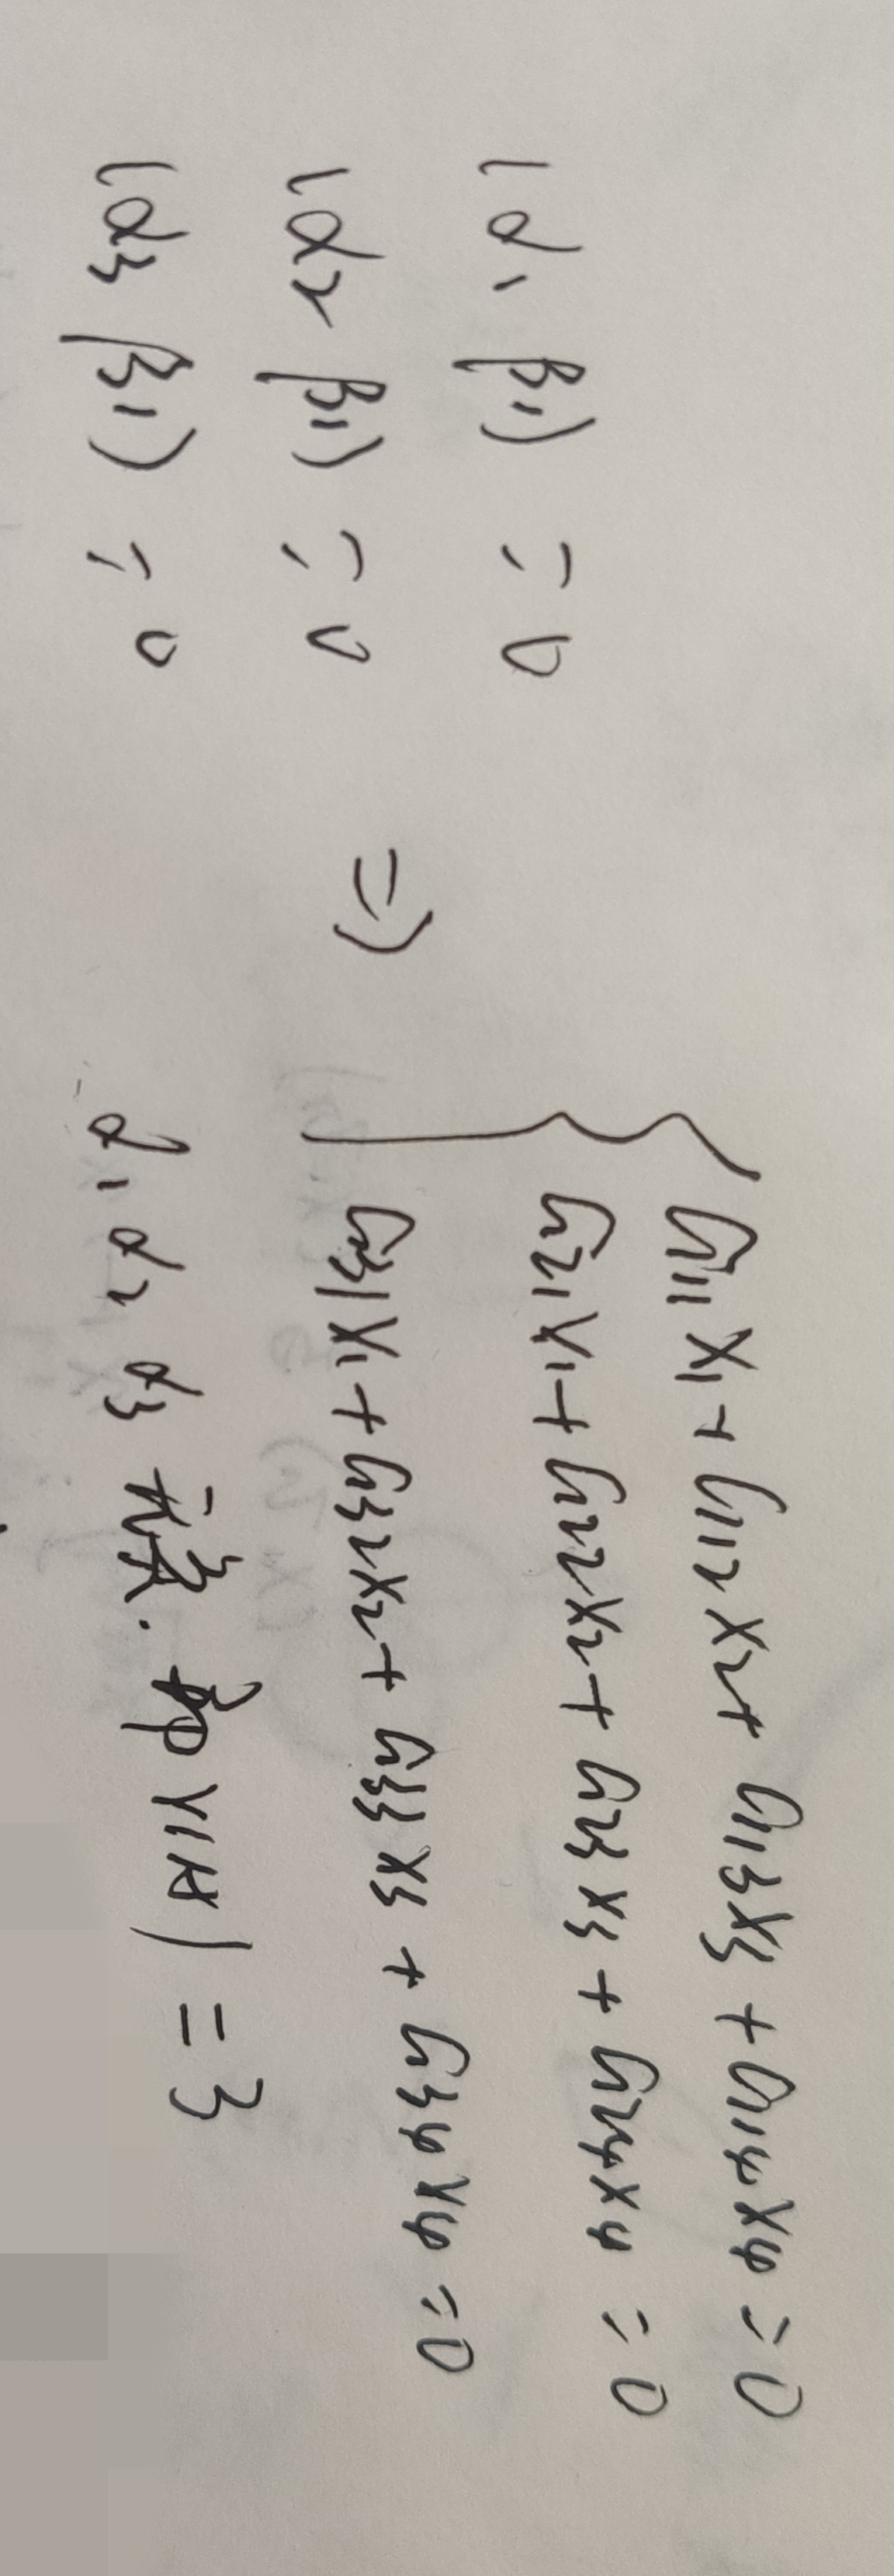 (α₁ β₁) = 0
(α₂ β₁) = 0 ⇒
(α₃ β₁) = 0
{ a₁₁x₁ + a₁₂x₂ + a₁₃x₃ + a₁₄x₄ = 0
a₂₁x₁ + a₂₂x₂ + a₂₃x₃ + a₂₄x₄ = 0
a₃₁x₁ + a₃₂x₂ + a₃₃x₃ + a₃₄x₄ = 0
α₁ α₂ α₃ 无关. 即 r(A) = 3